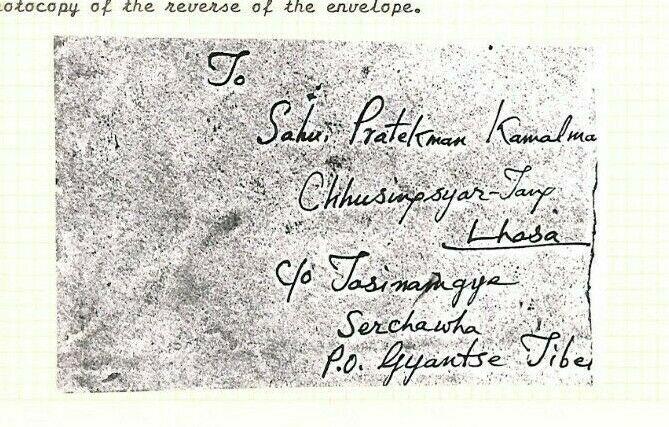 otocopy of the reverse of the envelope.
To
Sahu, Pratekman Kamalma
Chhusingsyar-Tang
Lhasa
c/o Tasinamgya
Serchawha
P.O. Gyantse Tibe